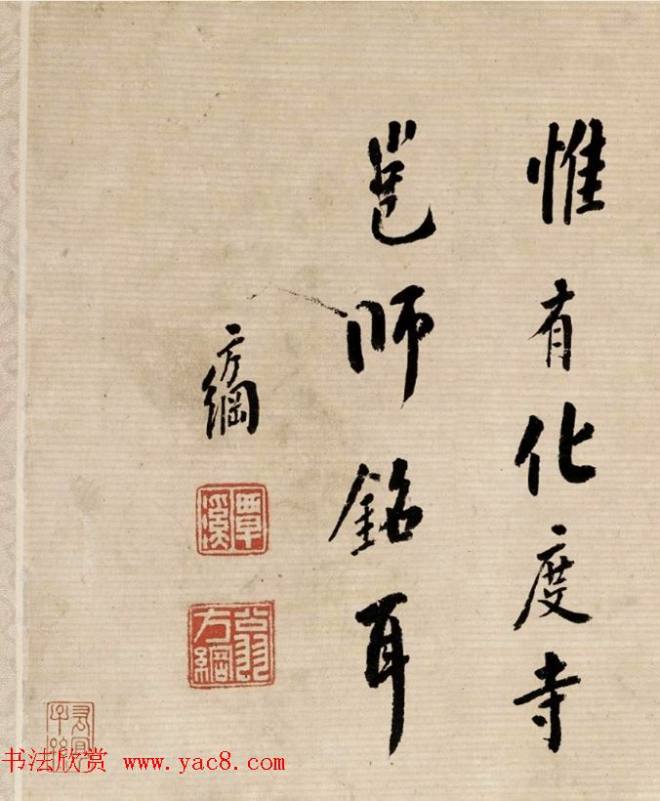 惟有化度寺
邕師銘耳
方綱
覃溪
翁方綱
书法欣赏 www.yac8.com